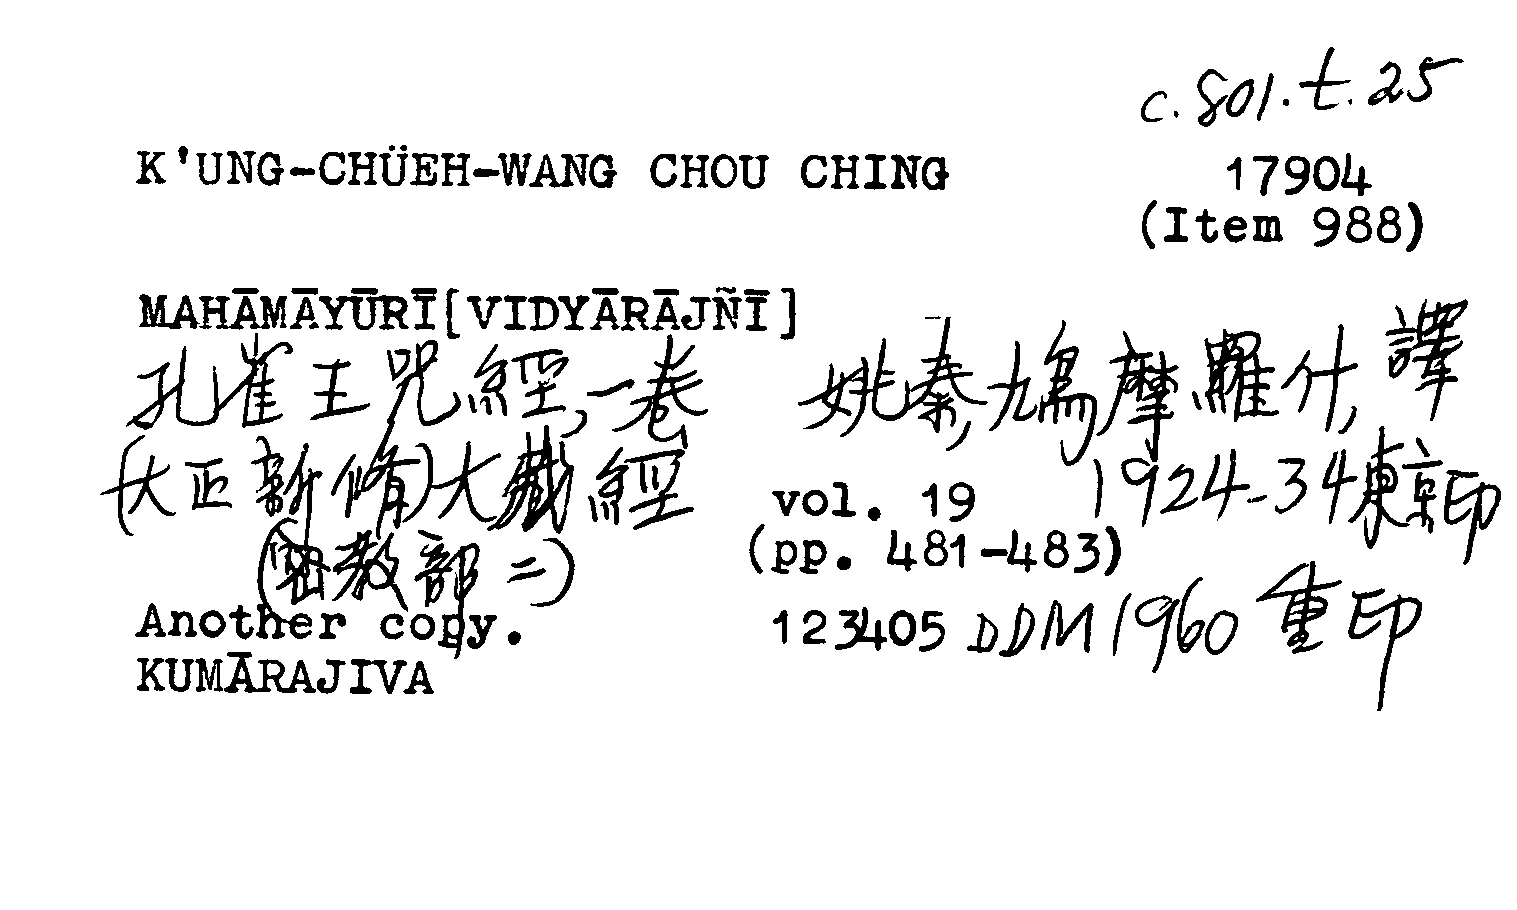 c.801.t.25
K'UNG-CHÜEH-WANG CHOU CHING 17904
(Item 988)
MAHĀMĀYŪRĪ[VIDYĀRĀJÑĪ]
孔雀王咒經,一卷 姚秦,鳩摩羅什,譯
(大正新脩)大藏經 vol. 19 1924-34東京印
(密教部二) (pp. 481-483)
Another copy. 123405 DDM 1960 重印
KUMĀRAJIVA